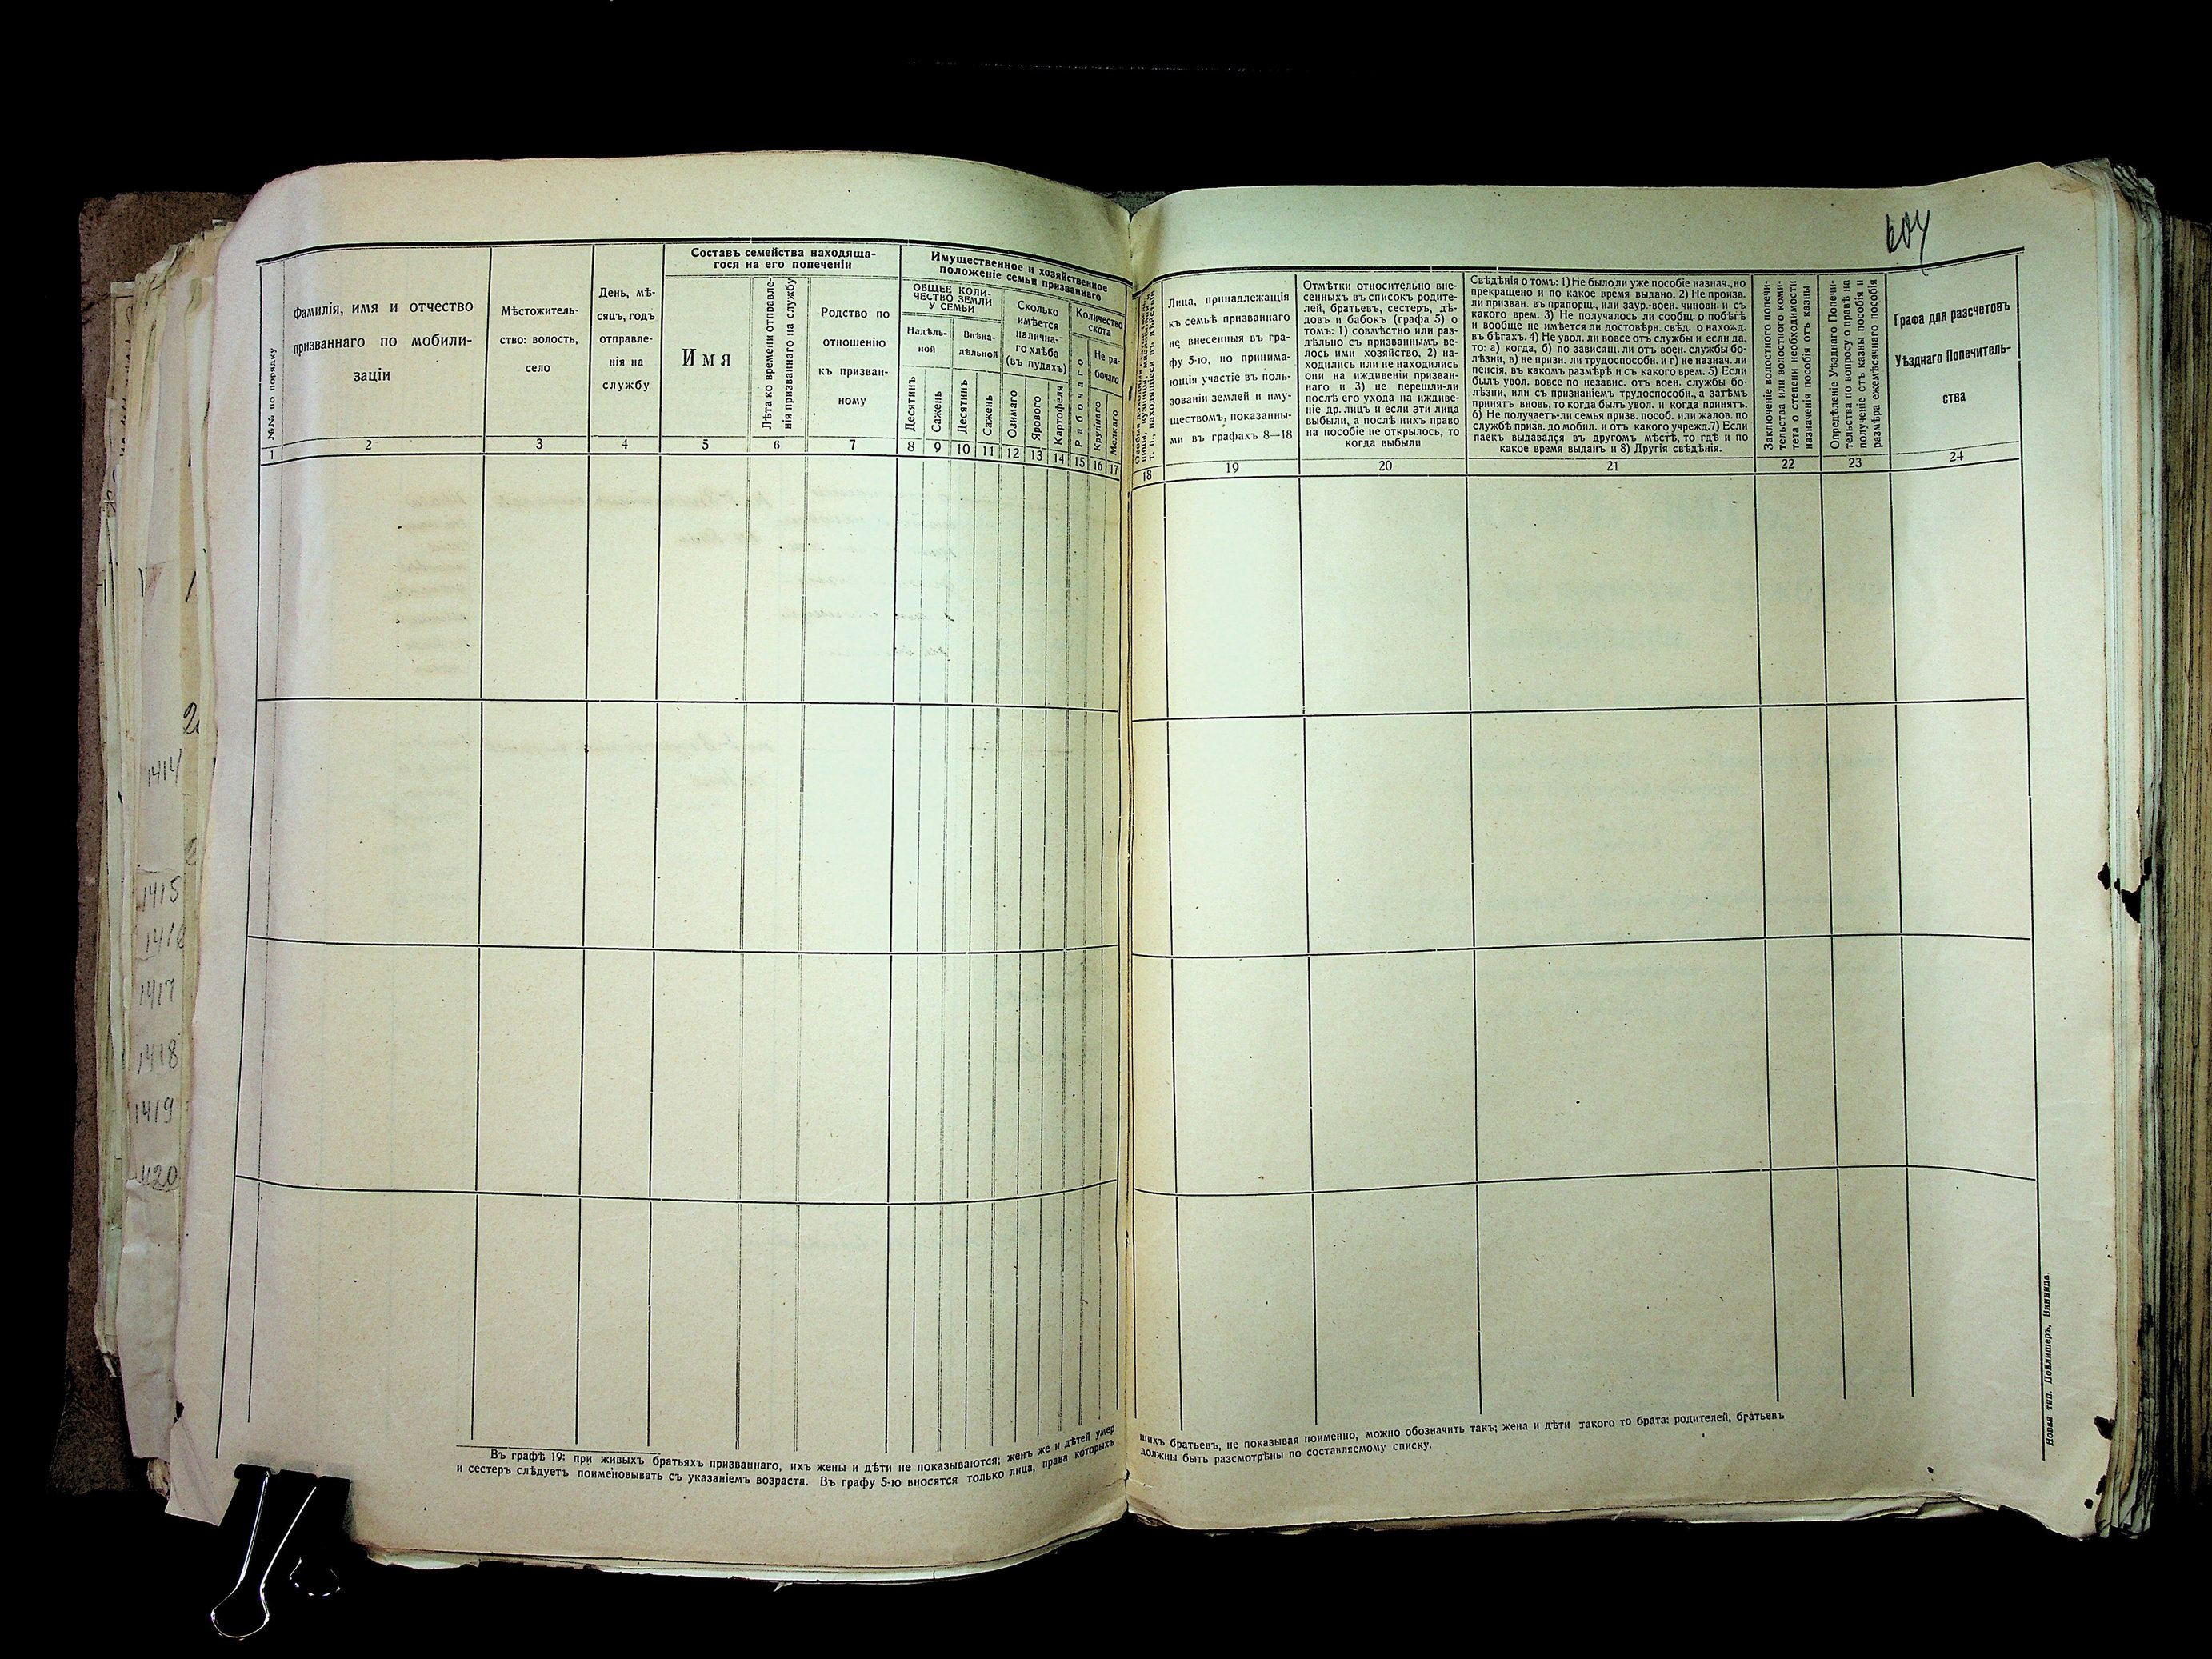 604
Составъ семейства находяща-
гося на его попеченіи
Имущественное и хозяйственное
положеніе семьи призваннаго
№№ по порядку
Фамилія, имя и отчество
призваннаго по мобили-
заціи
Мѣстожитель-
ство: волость,
село
День, мѣ-
сяцъ, годъ
отправле-
нія на
службу
Имя
Лѣта ко времени отправле-
нія призваннаго на службу
Родство по
отношенію
къ призван-
ному
ОБЩЕЕ КОЛИ-
ЧЕСТВО ЗЕМЛИ
У СЕМЬИ
Надѣль-
ной
Внѣна-
дѣльной
Десятинъ
Сажень
Десятинъ
Сажень
Сколько
имѣется
налична-
го хлѣба
(въ пудахъ)
Озимаго
Ярового
Картофеля
Количество
скота
Рабочаго
Не ра-
бочаго
Крупнаго
Мелкаго
1 2 3 4 5 6 7 8 9 10 11 12 13 14 15 16 17
т. п., находящіеся въ дѣйствіи
Лица, принадлежащія
къ семьѣ призваннаго
не внесенныя въ гра-
фу 5-ю, но принима-
ющія участіе въ поль-
зованіи землей и иму-
ществомъ, показанны-
ми въ графахъ 8—18
Отмѣтки относительно вне-
сенныхъ въ списокъ родите-
лей, братьевъ, сестеръ, дѣ-
довъ и бабокъ (графа 5) о
томъ: 1) совмѣстно или раз-
дѣльно съ призваннымъ ве-
лось ими хозяйство. 2) на-
ходились или не находились
они на иждивеніи призван-
наго и 3) не перешли-ли
послѣ его ухода на иждиве-
ніе др. лицъ и если эти лица
выбыли, а послѣ нихъ право
на пособіе не открылось, то
когда выбыли
Свѣдѣнія о томъ: 1) Не было ли уже пособіе назнач., но
прекращено и по какое время выдано. 2) Не произв.
ли призван. въ прапорщ., или заур.-воен. чиновн. и съ
какого врем. 3) Не получалось ли сообщ. о побѣгѣ
и вообще не имѣется ли достовѣрн. свѣд. о нахожд.
въ бѣгахъ. 4) Не увол. ли вовсе отъ службы и если да,
то: а) когда, б) по зависящ. ли отъ воен. службы бо-
лѣзни, в) не призн. ли трудоспособн. и г) не назнач. ли
пенсія, въ какомъ размѣрѣ и съ какого врем. 5) Если
былъ увол. вовсе по независ. отъ воен. службы бо-
лѣзни, или съ признаніемъ трудоспособн., а затѣмъ
принятъ вновь, то когда былъ увол. и когда принятъ.
6) Не получаетъ-ли семья призв. пособ. или жалов. по
службѣ призв. до мобил. и отъ какого учрежд. 7) Если
паекъ выдавался въ другомъ мѣстѣ, то гдѣ и по
какое время выданъ и 8) Другія свѣдѣнія.
Заключеніе волостного попечи-
тельства или волостного коми-
тета о степени необходимости
назначенія пособія отъ казны
Опредѣленіе Уѣзднаго Попечи-
тельства по вопросу о правѣ на
полученіе отъ казны пособія и
размѣра ежемѣсячнаго пособія
Графа для разсчетовъ
Уѣзднаго Попечитель-
ства
18 19 20 21 22 23 24
1414
1415
1416
1417
1418
1419
1420
Въ графѣ 19: при живыхъ братьяхъ призваннаго, ихъ жены и дѣти не показываются; женъ же и дѣтей умер
и сестеръ слѣдуетъ поименовывать съ указаніемъ возраста. Въ графу 5-ю вносятся только лица, права которыхъ
шихъ братьевъ, не показывая поименно, можно обозначить такъ; жена и дѣти такого то брата: родителей, братьевъ
должны быть разсмотрѣны по составляемому списку.
Новая тип. Цойлишеръ, Винница.